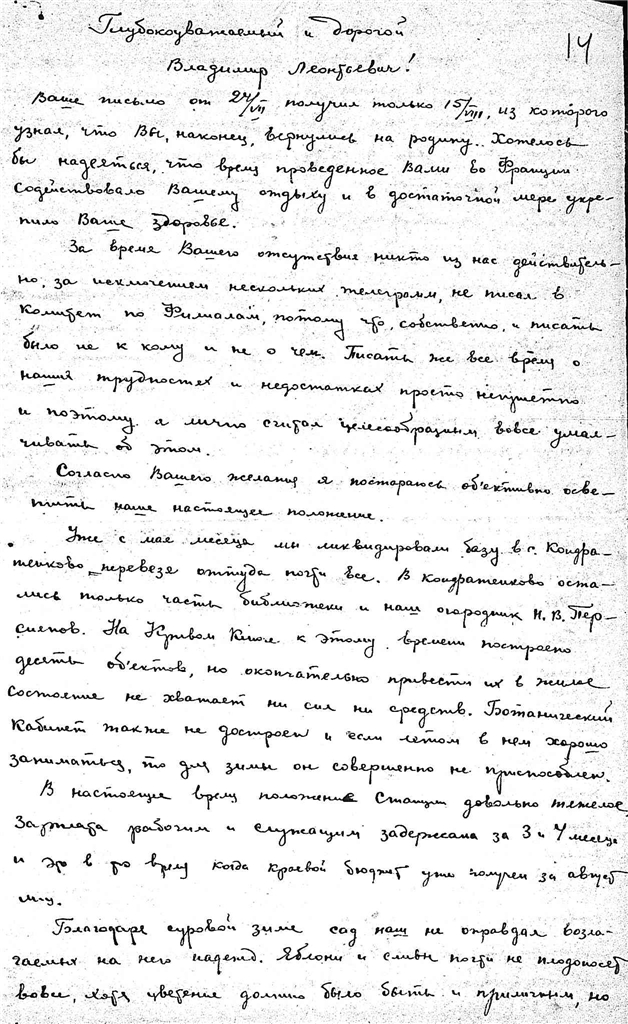 Глубокоуважаемый и дорогой
14
Владимир Леонтьевич!
Ваше письмо от 24/VII получил только 15/VIII, из которого
узнал, что Вы, наконец, вернулись на родину. Хотелось
бы надеяться, что время проведенное Вами во Франции
содействовало Вашему отдыху и в достаточной мере укре-
пило Ваше здоровье.
За время Вашего отсутствие никто из нас действитель-
но, за исключением нескольких телеграмм, не писал в
Комитет по Филиалам, потому что, собственно, и писать
было не к кому и не о чем. Писать же все время о
наших трудностях и недостатках просто
и поэтому я лично считал целесообразным вовсе умал-
чивать об этом.
Согласно Вашего желания я постараюсь об'ективно осве-
тить наше настоящее положение.
Уже с мая месяца мы ликвидировали базу в с. Кондра-
тенково перевезя оттуда почти все. В Кондратенково оста-
лись только часть библиотеки и наш огородник Н. В. Пер-
На Кривом Ключе к этому времени построено
десять об'ектов, но окончательно привести их в жилое
состояние не хватает ни сил ни средств. Ботанический
Кабинет также не достроен и если летом в нем хорошо
заниматься, то для зимы он совершенно не приспособлен.
В настоящее время положение Станции довольно тяжелое.
Зарплата рабочим и служащим задержана за 3 и 4 месяца
и это в то время когда краевой бюджет уже получен за август
м-ц.
Благодаря суровой зиме сад наш не оправдал возла-
гаемых на него надежд. Яблони и сливы почти не плодоносят
вовсе, хотя цветение должно было быть и приличным, но